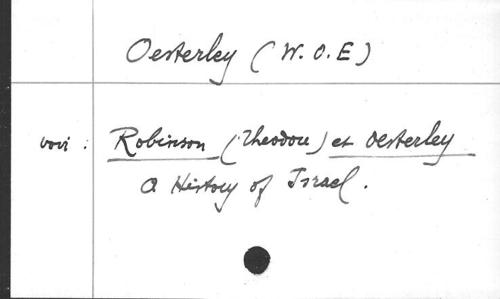 Oesterley (W.O.E)
voir : Robinson (Theodore) et Oesterley
A History of Israel.